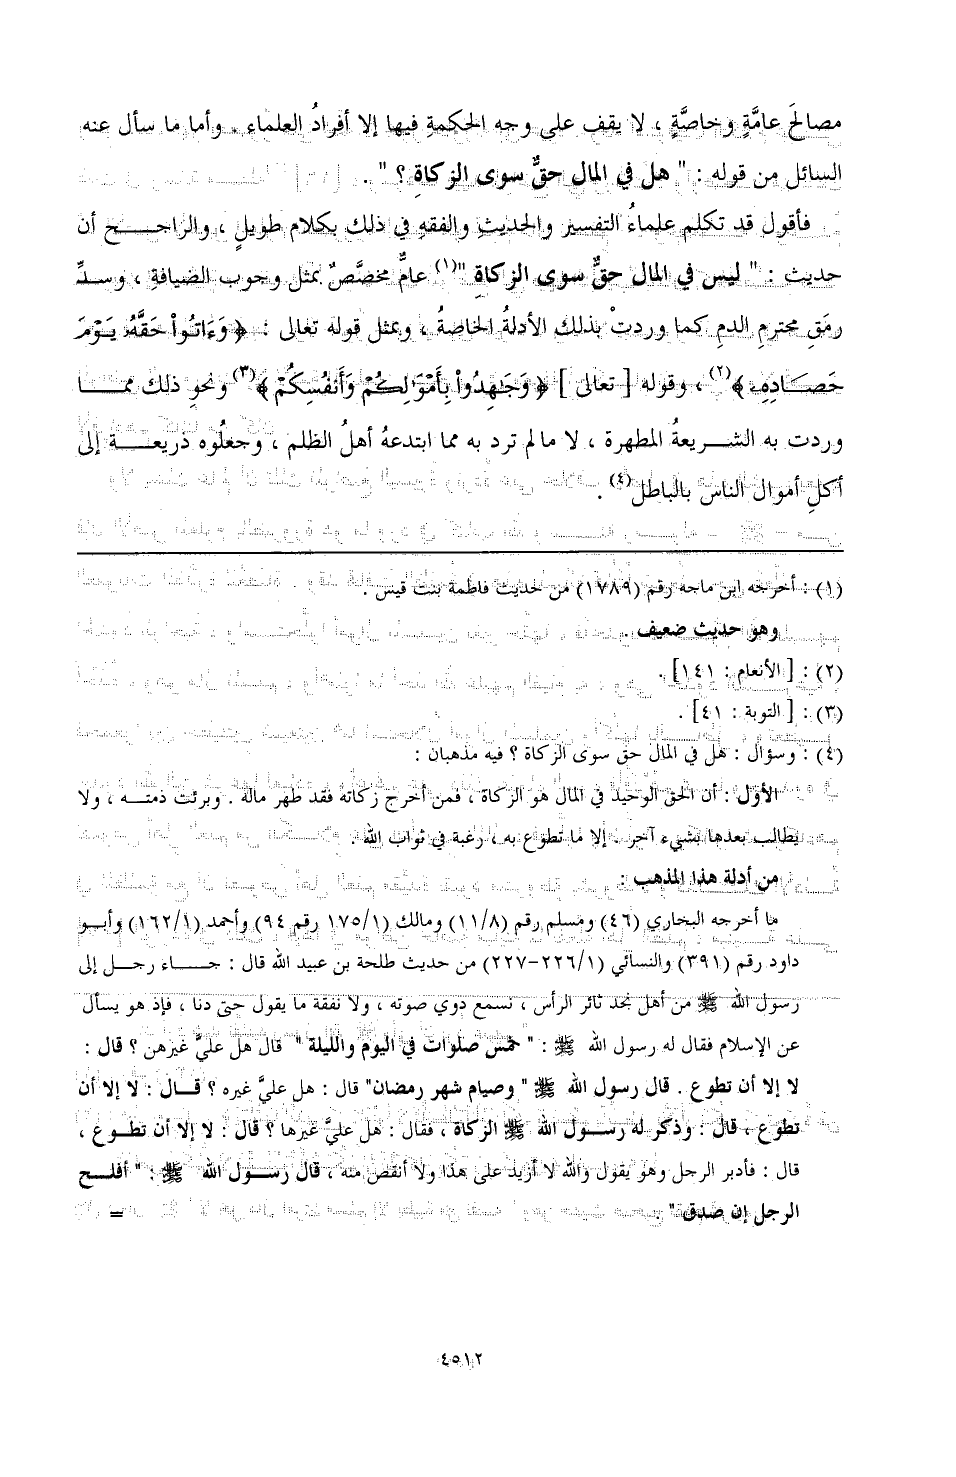 مصالحَ عامَّةٍ وخاصَّةٍ ، لا يقف على وجه الحكمةِ فيها إلا أفرادُ العلماء . وأما ما سأل عنه
السائل من قوله : " هل في المال حقٌّ سوى الزكاةِ ؟ " .
فأقول قد تكلم علماءُ التفسير والحديثِ والفقهِ في ذلك بكلام طويلٍ ، والراجـــح أن
حديث : " ليس في المال حقٌّ سوى الزكاةِ "(١) عامٌّ مخصَّصٌ بمثل وجوب الضيافةِ ، وسدِّ
رمَقِ محترمِ الدمِ كما وردتْ بذلك الأدلةُ الخاصةُ ، وبمثل قوله تعالى : ﴿ وَءَاتُواْ حَقَّهُۥ يَوْمَ
حَصَادِهِۦ ﴾(٢) ، وقوله [ تعالى ] ﴿ وَجَـٰهِدُواْ بِأَمْوَٰلِكُمْ وَأَنفُسِكُمْ ﴾(٣) ونحوِ ذلك ممـــا
وردت به الشــريعةُ المطهرة ، لا ما لم ترد به مما ابتدعهُ أهلُ الظلم ، وجعلُوه ذريعـــة إلى
أكلِ أموال الناس بالباطل(٤) .
(١) : أخرجه ابن ماجه رقم (١٧٨٩) من حديث فاطمة بنت قيس .
وهو حديث ضعيف .
(٢) : [ الأنعام : ١٤١] .
(٣) : [ التوبة : ٤١] .
(٤) : وسؤال : هل في المال حق سوى الزكاة ؟ فيه مذهبان :
الأوّل : أن الحق الوحيد في المال هو الزكاة ، فمن أخرج زكاته فقد طهر ماله . وبرئت ذمتــه ، ولا
يطالب بعدها بشيء آخر . إلا ما تطوع به ، رغبة في ثواب الله .
من أدلة هذا المذهب :
ما أخرجه البخاري (٤٦) ومسلم رقم (١١/٨) ومالك (١٧٥/١ رقم ٩٤) وأحمد (١٦٢/١) وأبــو
داود رقم (٣٩١) والنسائي (٢٢٦/١-٢٢٧) من حديث طلحة بن عبيد الله قال : جـــاء رجــل إلى
رسول الله ﷺ من أهل نجد ثائر الرأس ، نسمع دوي صوته ، ولا نفقة ما يقول حتى دنا ، فإذ هو يسأل
عن الإسلام فقال له رسول الله ﷺ : " خمس صلوات في اليوم والليلة " قال هل عليَّ غيرهن ؟ قال :
لا إلا أن تطوع . قال رسول الله ﷺ " وصيام شهر رمضان" قال : هل عليَّ غيره ؟ قــال : لا إلا أن
تطوع ، قال : وذكر له رســول الله ﷺ الزكاة ، فقال : هل عليَّ غيرها ؟ قال : لا إلا أن تطــوع ،
قال : فأدبر الرجل وهو يقول والله لا أزيد على هذا ولا أنقص منه ، قال رســول الله ﷺ : " أفلــح
الرجل إن صدق " . =
٤٥١٢